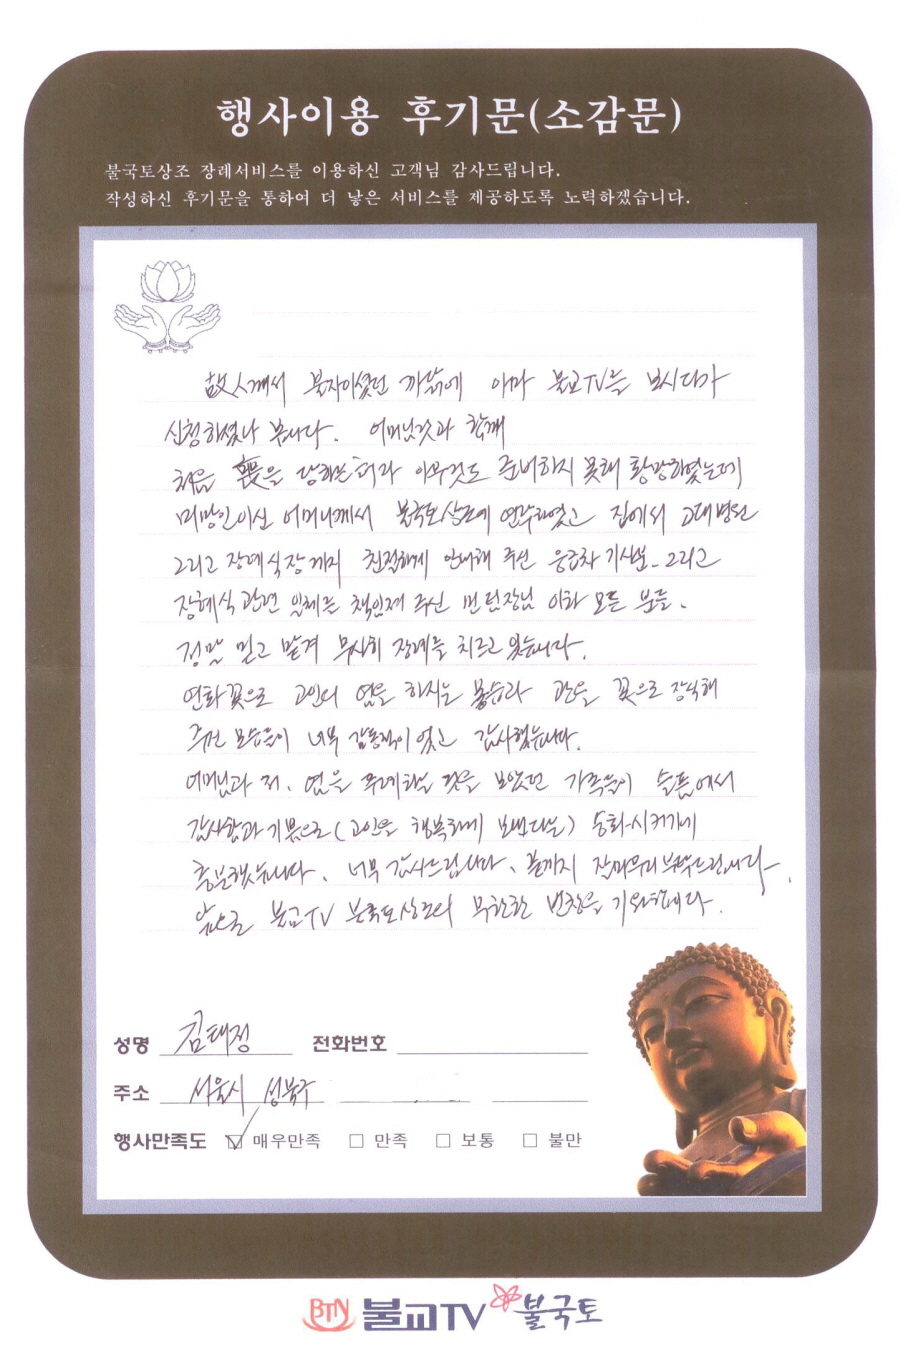 행사이용 후기문(소감문)
불국토상조 장례서비스를 이용하신 고객님 감사드립니다.
작성하신 후기문을 통하여 더 낳은 서비스를 제공하도록 노력하겠습니다.
故人께서 불자이셨던 까닭에 아마 불교TV를 보시다가
신청하셨나 봅니다. 어머님것과 함께
처음 喪을 당하는 터라 아무것도 준비하지 못해 황망하였는데
미망인이신 어머니께서 불국토상조에 연락하였고 집에서 고대병원
그리고 장례식장까지 친절하게 안내해 주신 응급차 기사분. 그리고
장례식 관련 일체를 책임져 주신 팀장님 이하 모든 분들.
정말 믿고 맡겨 무사히 장례를 치르고 왔습니다.
연화꽃으로 고인의 염을 하시는 모습과 관을 꽃으로 장식해
주신 모습들이 너무 감동적이었고 감사했습니다.
어머님과 저. 염을 하실 것을 보았던 가족들이 슬픔에서
감사함과 기쁨으로 (고인을 행복하게 보낸다는) 승화시키기에
충분했습니다. 너무 감사드립니다. 끝까지 잘 마무리 부탁드립니다.
앞으로 불교TV 불국토상조의 무한한 번창을 기원합니다.
성명 김태정 전화번호
주소 서울시 성북구
행사만족도 매우만족 만족 보통 불만
BTN 불교TV 불국토